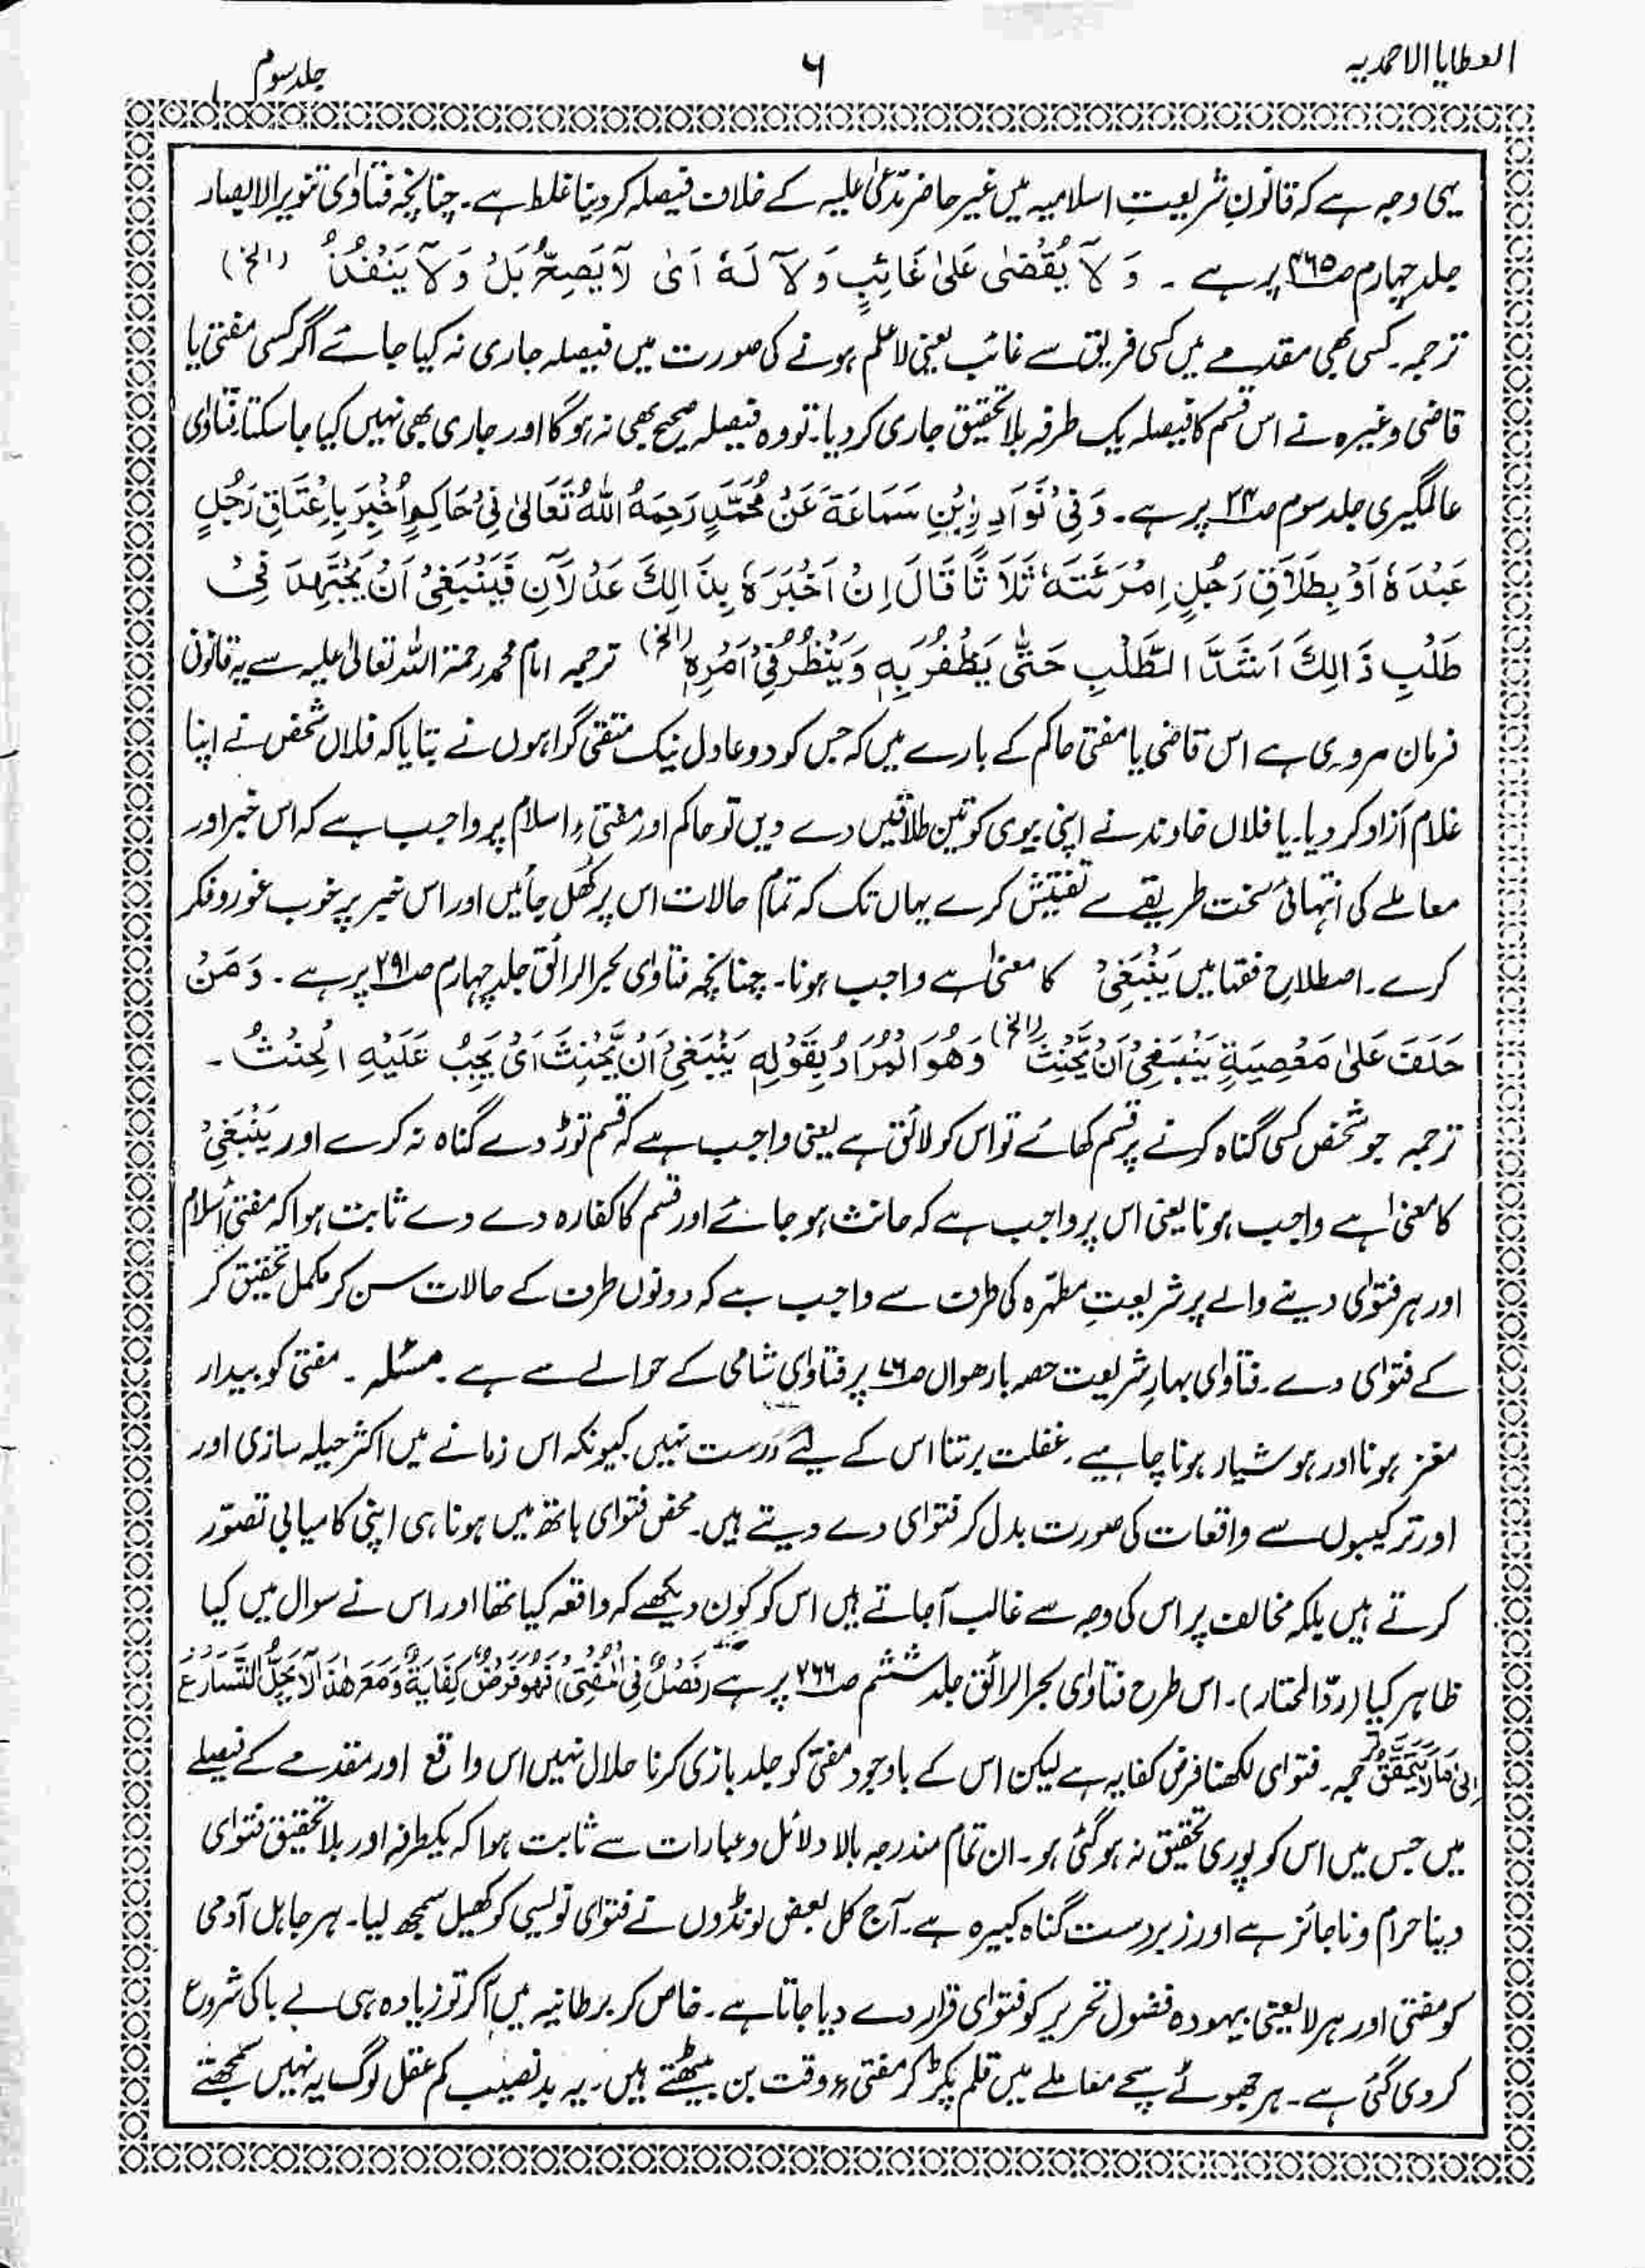 العطایا الاحمدیہ
۶
جلد سوم
یہی وجہ ہے کہ قانونِ شریعتِ اسلامیہ میں غیر حاضر مدّعیٰ علیہ کے خلاف فیصلہ کر دینا غلط ہے۔ چنانچہ فتاوٰی تنویر الابصار
جلد چہارم ص۳۶۵ پر ہے ۔ وَلَا یُقْضٰی عَلیٰ غَائِبٍ وَلَآ لَہٗ اَیْ لَا یَصِحُّ بَلْ وَلَا یَنْفُذُ (الخ)
ترجمہ۔ کسی بھی مقدمے میں کسی فریق سے غائب یعنی لا علم ہونے کی صورت میں فیصلہ جاری نہ کیا جائے اگر کسی مفتی یا
قاضی وغیرہ نے اس قسم کا فیصلہ یک طرفہ بلا تحقیق جاری کر دیا۔ تو وہ فیصلہ صحیح بھی نہ ہوگا اور جاری بھی نہیں کیا جا سکتا فتاوٰی
عالمگیری جلد سوم ص پر ہے۔ وَفِیْ نَوَادِرِ بْنِ سَمَاعَۃَ عَنْ مُحَمَّدٍ رَحِمَہُ اللّٰہُ تَعَالیٰ فِیْ حَاکِمٍ اُخْبِرَ بِاِعْتَاقِ رَجُلٍ
عَبْدَہٗ اَوْ بِطَلَاقِ رَجُلٍ اِمْرَئَتَہٗ ثَلَاثًا قَالَ اِنْ اَخْبَرَہٗ بِذَالِكَ عَدْلَآنِ فَیَنْبَغِیْ اَنْ یَجْتَہِدَ فِیْ
طَلْبِ ذَالِكَ اَشَدَّ الطَّلْبِ حَتّٰی یَظْفُرَ بِہٖ وَیَنْظُرَ فِیْ اَمْرِہٖ (الخ) ترجمہ امام محمد رحمۃ اللّٰہ تعالیٰ علیہ سے یہ قانونی
فرمان مروی ہے اس قاضی یا مفتی حاکم کے بارے میں کہ جس کو دو عادل نیک متقی گواہوں نے بتایا کہ فلاں شخص نے اپنا
غلام آزاد کر دیا۔ یا فلاں خاوند نے اپنی بیوی کو تین طلاقیں دے دیں تو حاکم اور مفتیٔ اسلام پر واجب ہے کہ اس خبر اور
معاملے کی انتہائی سخت طریقے سے تفتیش کرے یہاں تک کہ تمام حالات اس پر کُھل جائیں اور اس خبر پر خوب غور و فکر
کرے۔ اصطلاحِ فقہا میں یَنْبَغِیْ کا معنیٰ ہے واجب ہونا۔ چنانچہ فتاوٰی بحر الرائق جلد چہارم ص۲۹۱ پر ہے ۔ وَمَنْ
حَلَفَ عَلیٰ مَعْصِیَۃٍ یَنْبَغِیْ اَنْ یَّحْنِثَ (الخ) وَھُوَ الْمُرَادُ بِقَوْلِہٖ یَنْبَغِیْ اَنْ یَّحْنِثَ اَیْ یَجِبُ عَلَیْہِ الْحِنْثُ ۔
ترجمہ جو شخص کسی گناہ کرنے پر قسم کھائے تو اس کو لائق ہے یعنی واجب ہے کہ قسم توڑ دے گناہ نہ کرے اور یَنْبَغِیْ
کا معنیٰ ہے واجب ہونا یعنی اس پر واجب ہے کہ حانث ہو جائے اور قسم کا کفارہ دے دے ثابت ہوا کہ مفتیٔ اسلام
اور ہر فتوٰی دینے والے پر شریعتِ مطہّرہ کی طرف سے واجب ہے کہ دونوں طرف کے حالات سن کر مکمل تحقیق کر
کے فتوٰی دے۔ فتاوٰی بہارِ شریعت حصہ بارھواں ص۷۶ پر فتاوٰی شامی کے حوالے سے ہے ۔ مسئلہ ۔ مفتی کو بیدار
مغز ہونا اور ہوشیار ہونا چاہیے۔ غفلت برتنا اس کے لیے درست نہیں کیونکہ اس زمانے میں اکثر حیلہ سازی اور
اور ترکیبوں سے واقعات کی صورت بدل کر فتوٰی دے دیتے ہیں۔ محض فتوٰی ہاتھ میں ہونا ہی اپنی کامیابی تصوّر
کرتے ہیں بلکہ مخالف پر اس کی وجہ سے غالب آ جاتے ہیں اس کو کون دیکھے کہ واقعہ کیا تھا اور اس نے سوال میں کیا
ظاہر کیا (ردّ المحتار)۔ اس طرح فتاوٰی بحر الرائق جلد ششم ص۲۶۶ پر ہے (فَصْلٌ فِی الْمُفْتِی) فَھُوَ فَرْضٌ کِفَایَۃٌ وَمَعَ ھٰذَا لَا یَحِلُّ التَّسَارُعُ
اِلیٰ مَالَا یَتَحَقَّقُ ترجمہ۔ فتوٰی لکھنا فرض کفایہ ہے لیکن اس کے باوجود مفتی کو جلد بازی کرنا حلال نہیں اس واقع اور مقدمے کے فیصلے
میں جس میں اس کو پوری تحقیق نہ ہو گئی ہو۔ ان تمام مندرجہ بالا دلائل و عبارات سے ثابت ہوا کہ یکطرفہ اور بلا تحقیق فتوٰی
دینا حرام و ناجائز ہے اور زبردست گناہ کبیرہ ہے۔ آج کل بعض لونڈوں نے فتوٰی نویسی کو کھیل سمجھ لیا۔ ہر جاہل آدمی
کو مفتی اور ہر لا یعنی بیہودہ فضول تحریر کو فتوٰی قرار دے دیا جاتا ہے۔ خاص کر برطانیہ میں آکر تو زیادہ ہی بے باکی شروع
کر دی گئی ہے۔ ہر جھوٹے سچے معاملے میں قلم پکڑ کر مفتیٔ وقت بن بیٹھتے ہیں۔ یہ بدنصیب کم عقل لوگ یہ نہیں سمجھتے